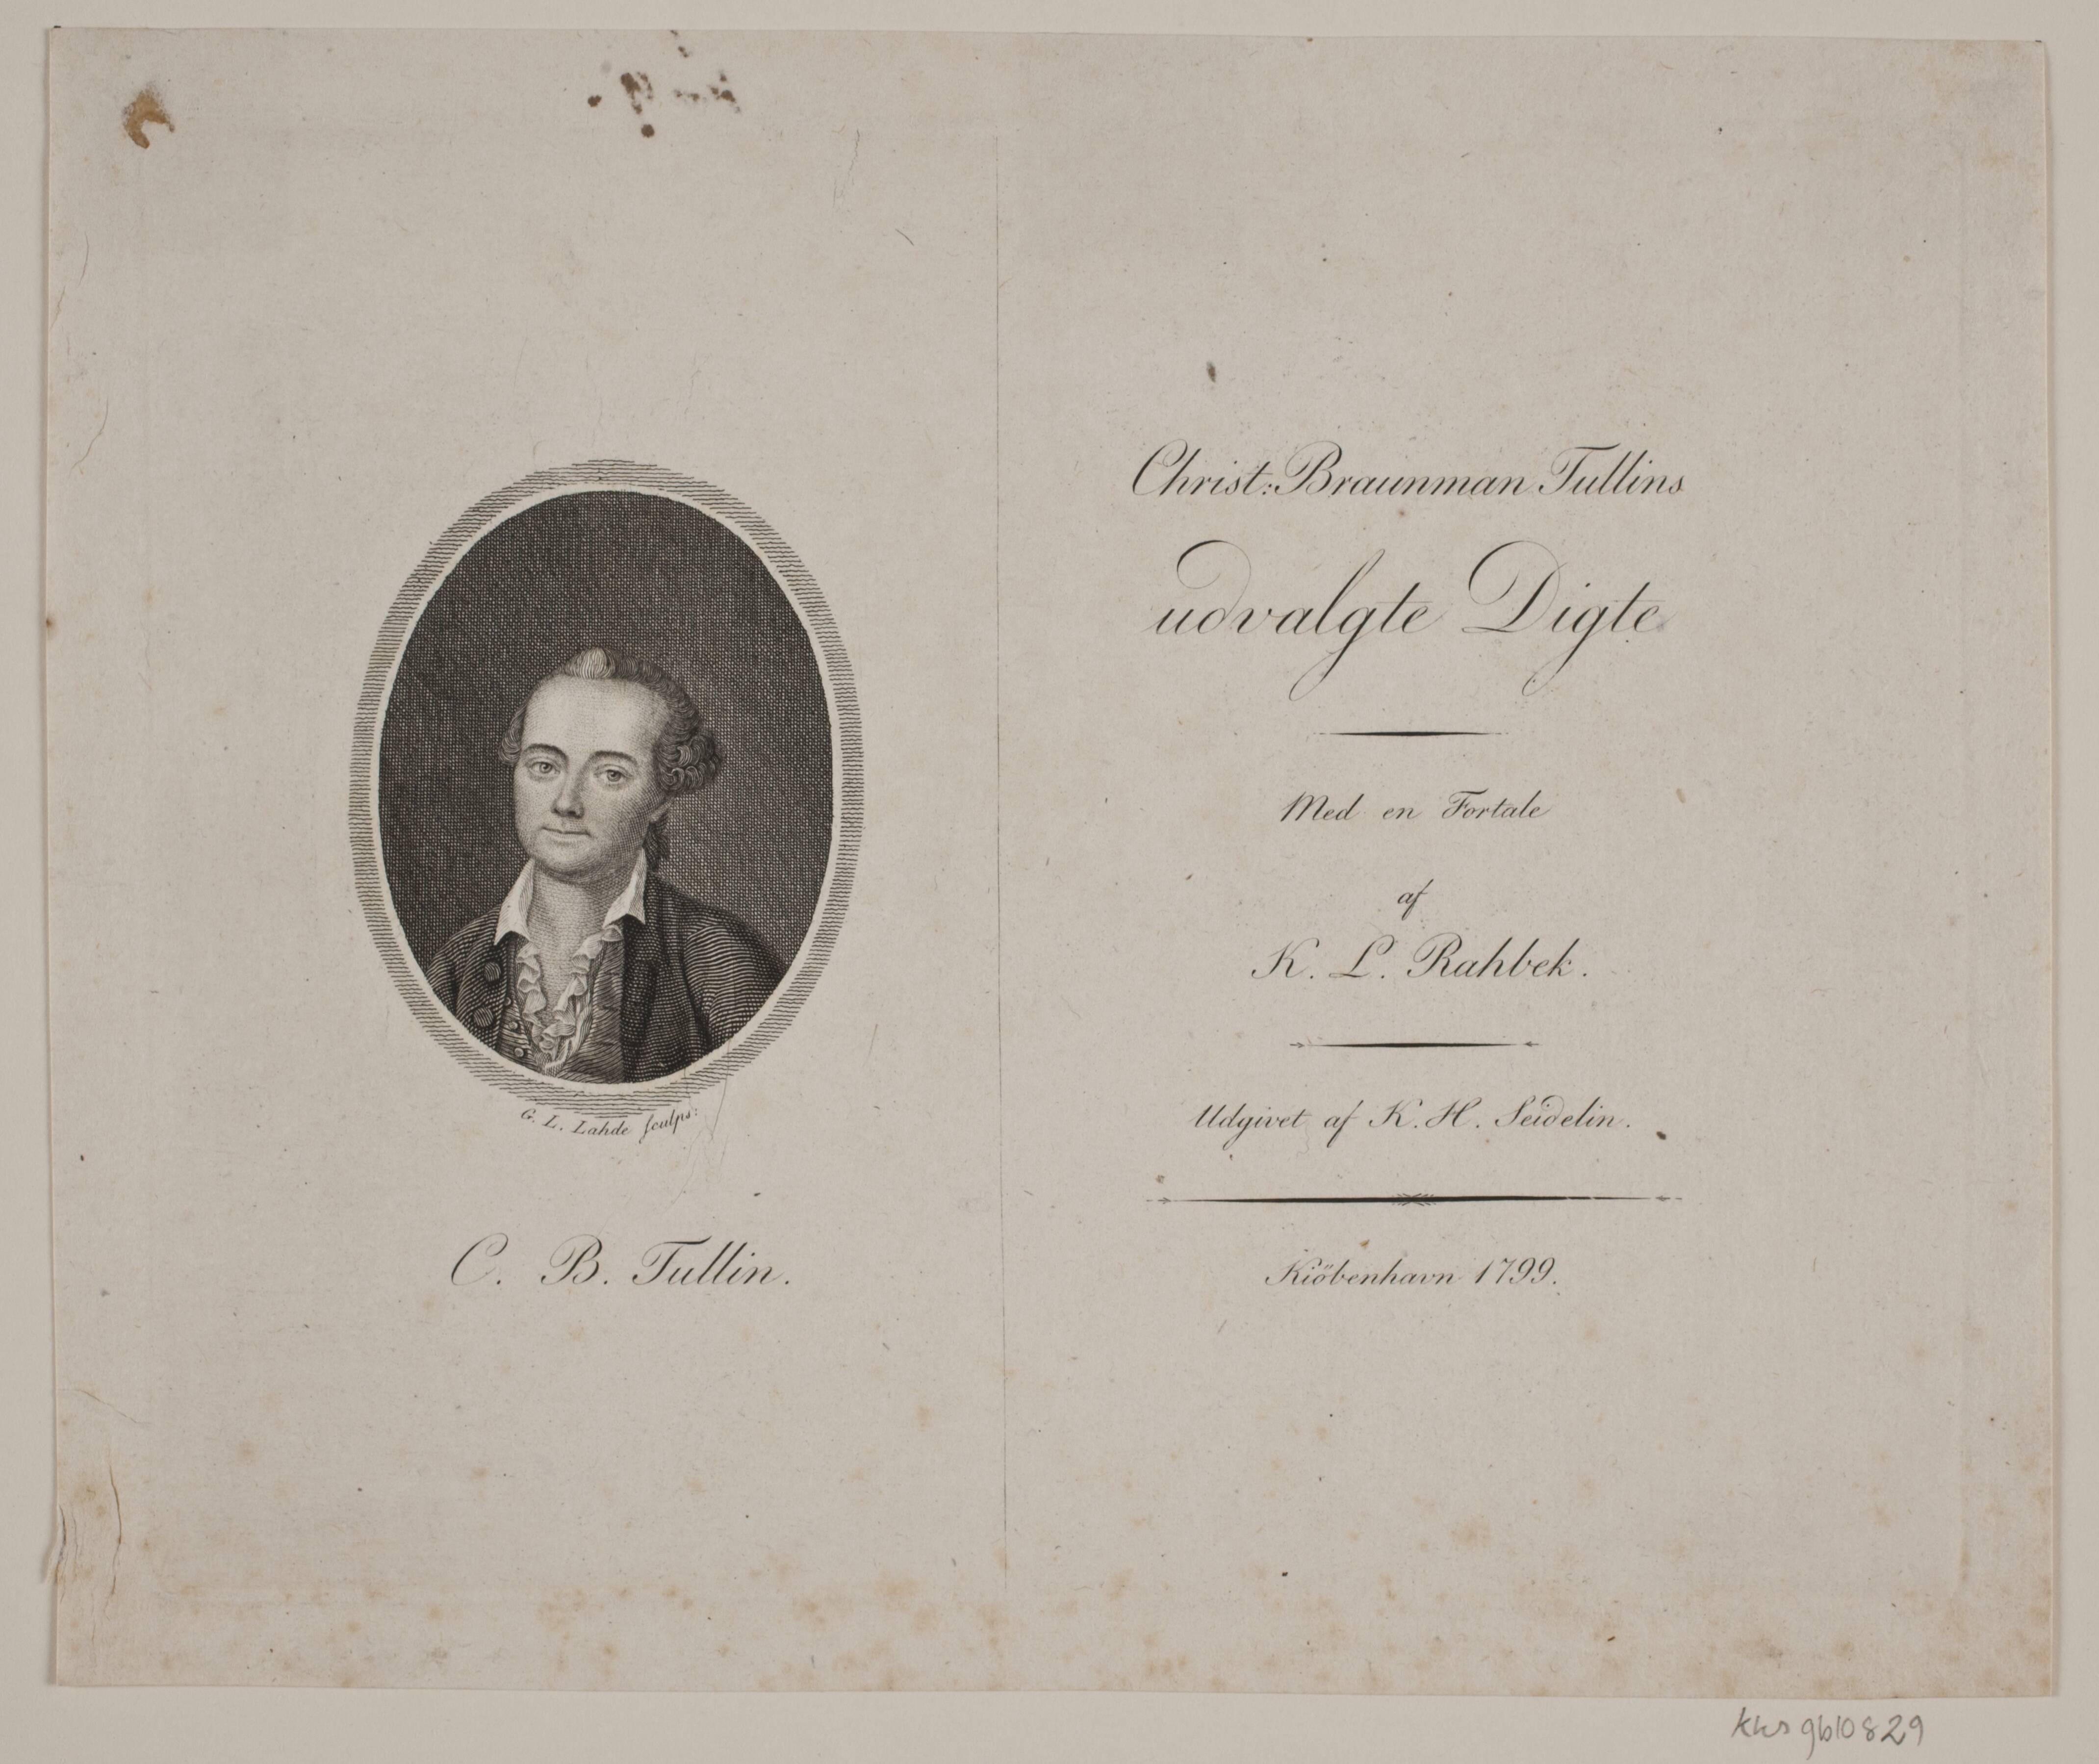 G. L. Lahde sculps:
C. B. Tullin.
Christ: Braunman Tullins
udvalgte Digte
Med en Fortale
af
K. L. Rahbek.
Udgivet af K. H. Seidelin.
Kiöbenhavn 1799.
kks gb10829